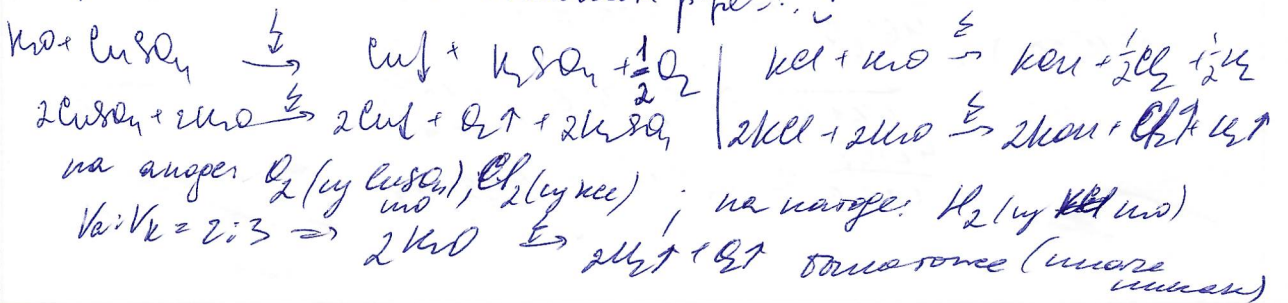 H₂O + CuSO₄ →(⚡) Cu↓ + H₂SO₄ + ½O₂ | KCl + H₂O →(⚡) KOH + ½Cl₂ + ½H₂
2CuSO₄ + 2H₂O →(⚡) 2Cu↓ + O₂↑ + 2H₂SO₄ | 2KCl + 2H₂O →(⚡) 2KOH + Cl₂↑ + H₂↑
на аноде: O₂ (из CuSO₄), Cl₂ (из KCl) ; на катоде: H₂ (из H₂O)
Va:Vк = 2:3 ⇒ 2H₂O →(⚡) 2H₂↑ + O₂↑ было тоже (иначе никак)